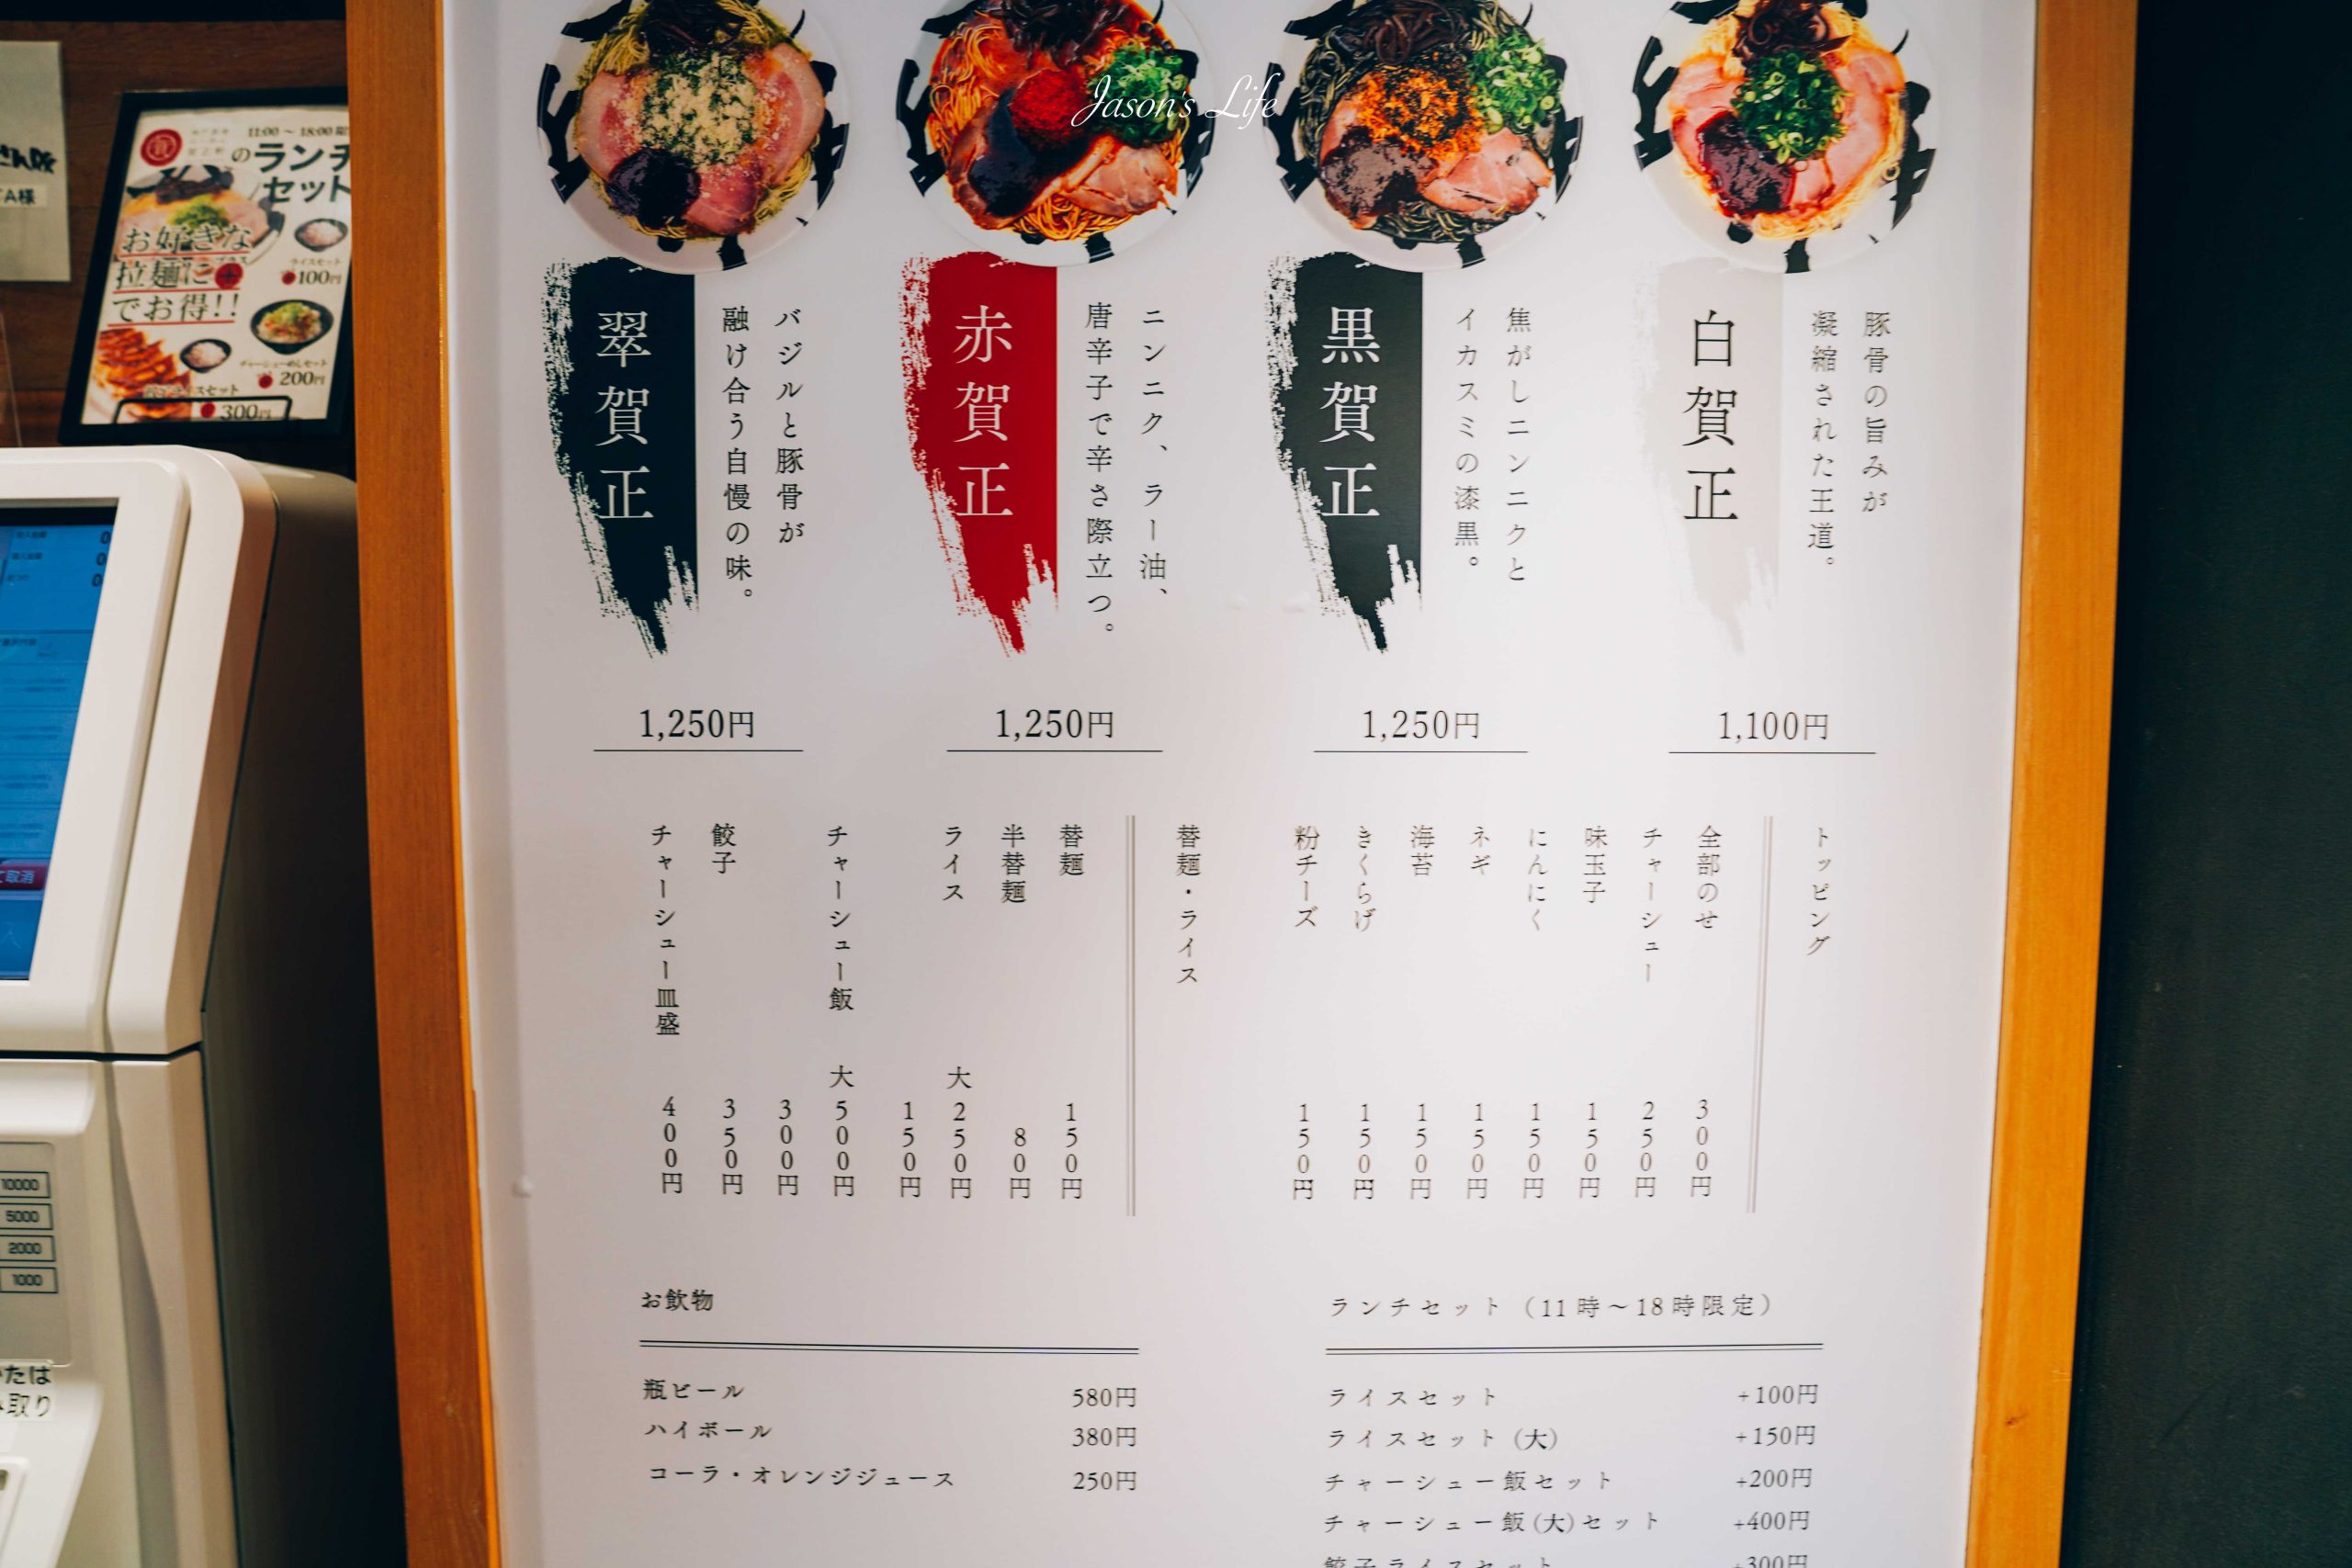 Jason's Life
豚骨の旨みが
凝縮された王道。
白賀正
1,100円
焦がしニンニクと
イカスミの漆黒。
黒賀正
1,250円
ニンニク、ラー油、
唐辛子で辛さ際立つ。
赤賀正
1,250円
バジルと豚骨が
融け合う自慢の味。
翠賀正
1,250円
トッピング
全部のせ 300円
チャーシュー 250円
味玉子 150円
にんにく 150円
ネギ 150円
海苔 150円
きくらげ 150円
粉チーズ 150円
替麺・ライス
替麺 150円
半替麺 80円
ライス 大250円
150円
チャーシュー飯 大500円
300円
餃子 350円
チャーシュー皿盛 400円
お飲物
瓶ビール 580円
ハイボール 380円
コーラ・オレンジジュース 250円
ランチセット（11時～18時限定）
ライスセット +100円
ライスセット(大) +150円
チャーシュー飯セット +200円
チャーシュー飯(大)セット +400円
餃子ライスセット +300円
11:00～18:00
のランチ
セット
お好きな
拉麺に
でお得!!
ライスセット
100円
チャーシューめしセット
200円
300円
A様
取消
入
10000
5000
2000
1000
たは
取り